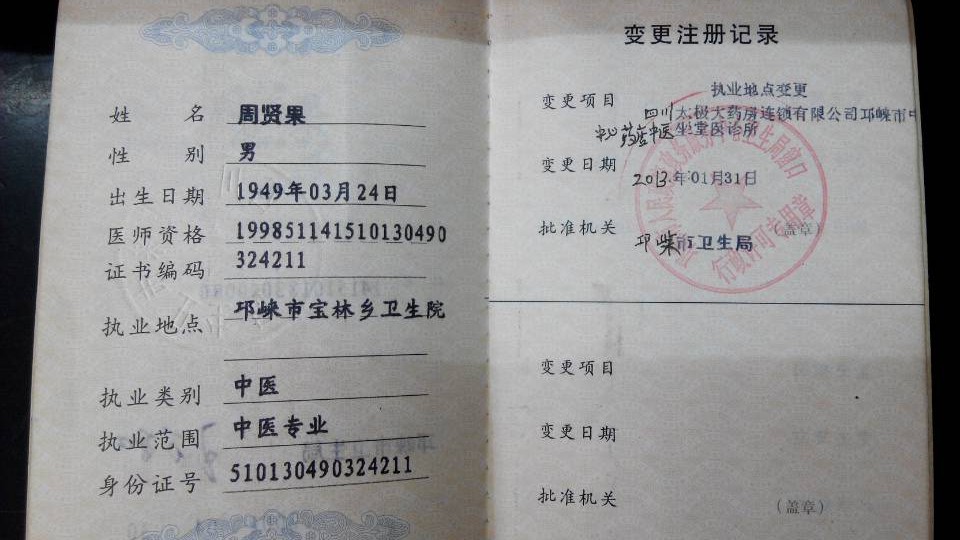 姓 名 周贤果
性 别 男
出生日期 1949年03月24日
医师资格 199851141510130490
证书编码 324211
执业地点 邛崃市宝林乡卫生院
执业类别 中医
执业范围 中医专业
身份证号 510130490324211
变更注册记录
执业地点变更
变更项目 四川太极大药房连锁有限公司邛崃市中
中心药店中医坐堂医诊所
变更日期
2013年01月31日
批准机关 (盖章)
邛崃市卫生局
行政许可专用章
变更项目
变更日期
批准机关
(盖章)